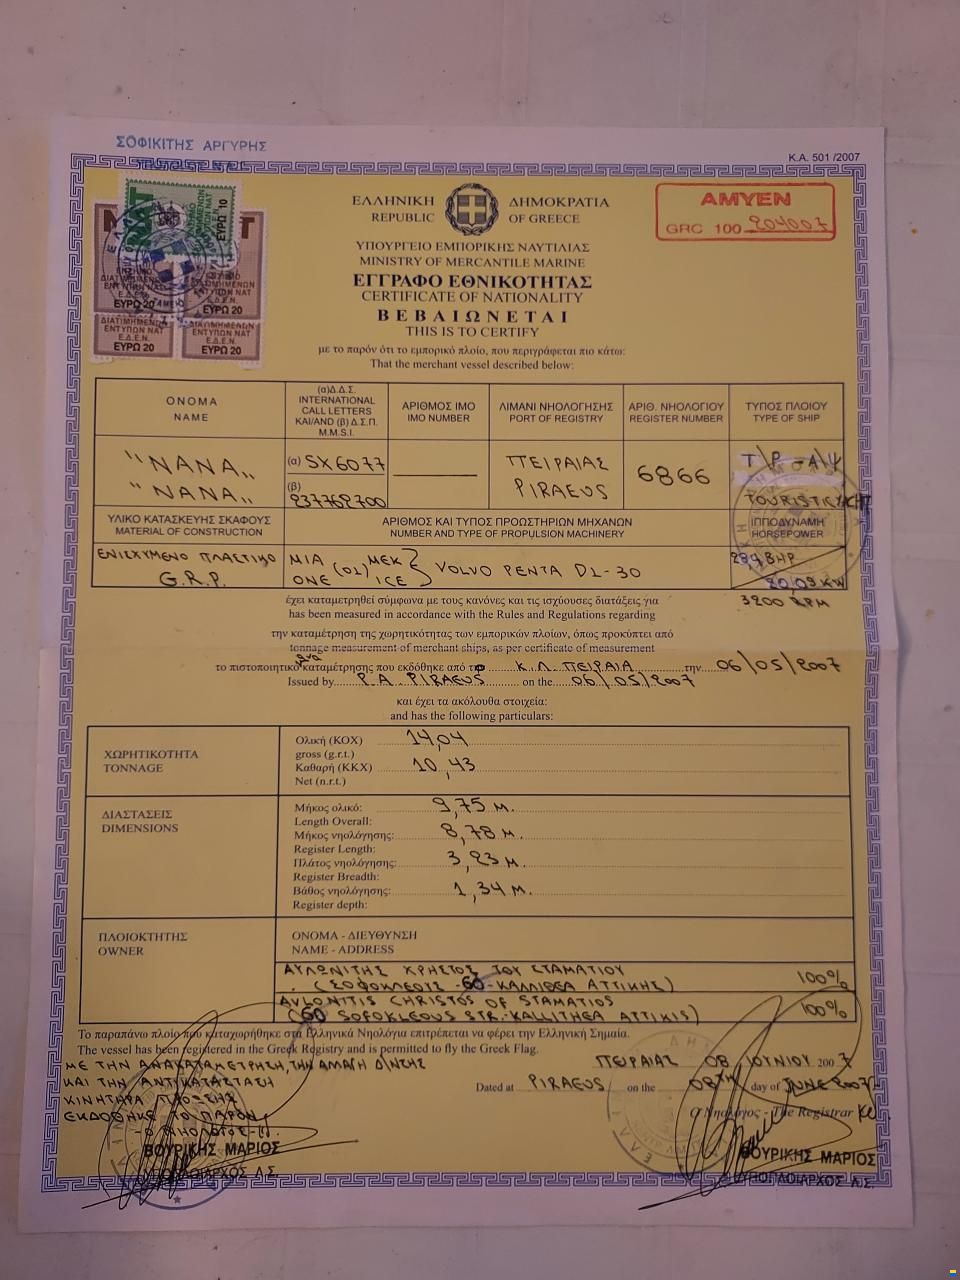 ΣΟΦΙΚΙΤΗΣ ΑΡΓΥΡΗΣ
Κ.Α. 501 /2007
ΕΛΛΗΝΙΚΗ ΔΗΜΟΚΡΑΤΙΑ
REPUBLIC OF GREECE
ΑΜΥΕΝ
GRC 100 204007
ΕΥΡΩ 10
ΕΥΡΩ 20
ΔΙΑΤΙΜΗΜΕΝΩΝ ΕΝΤΥΠΩΝ ΝΑΤ Ε.Δ.Ε.Ν. ΕΥΡΩ 20
ΔΙΑΤΙΜΗΜΕΝΩΝ ΕΝΤΥΠΩΝ ΝΑΤ Ε.Δ.Ε.Ν. ΕΥΡΩ 20
ΥΠΟΥΡΓΕΙΟ ΕΜΠΟΡΙΚΗΣ ΝΑΥΤΙΛΙΑΣ
MINISTRY OF MERCANTILE MARINE
ΕΓΓΡΑΦΟ ΕΘΝΙΚΟΤΗΤΑΣ
CERTIFICATE OF NATIONALITY
ΒΕΒΑΙΩΝΕΤΑΙ
THIS IS TO CERTIFY
με το παρόν ότι το εμπορικό πλοίο, που περιγράφεται πιο κάτω:
That the merchant vessel described below:
ΟΝΟΜΑ
NAME
(α)Δ.Δ.Σ.
INTERNATIONAL
CALL LETTERS
ΚΑΙ/AND (β) Δ.Σ.Π.
M.M.S.I.
ΑΡΙΘΜΟΣ ΙΜΟ
IMO NUMBER
ΛΙΜΑΝΙ ΝΗΟΛΟΓΗΣΗΣ
PORT OF REGISTRY
ΑΡΙΘ. ΝΗΟΛΟΓΙΟΥ
REGISTER NUMBER
ΤΥΠΟΣ ΠΛΟΙΟΥ
TYPE OF SHIP
"NANA"
"NANA"
(α) SX6077
(β)
237762700
ΠΕΙΡΑΙΑΣ
PIRAEUS
6866
Τ/Ρ - Α/Ψ
TOURISTIC YACHT
ΥΛΙΚΟ ΚΑΤΑΣΚΕΥΗΣ ΣΚΑΦΟΥΣ
MATERIAL OF CONSTRUCTION
ΑΡΙΘΜΟΣ ΚΑΙ ΤΥΠΟΣ ΠΡΟΩΣΤΗΡΙΩΝ ΜΗΧΑΝΩΝ
NUMBER AND TYPE OF PROPULSION MACHINERY
ΙΠΠΟΔΥΝΑΜΗ
HORSEPOWER
ΕΝΙΣΧΥΜΕΝΟ ΠΛΑΣΤΙΚΟ
G.R.P.
ΜΙΑ (01) ΜΕΚ
ONE ICE
VOLVO PENTA D1-30
BHP
KW
3200 RPM
έχει καταμετρηθεί σύμφωνα με τους κανόνες και τις ισχύουσες διατάξεις για
has been measured in accordance with the Rules and Regulations regarding
την καταμέτρηση της χωρητικότητας των εμπορικών πλοίων, όπως προκύπτει από
tonnage measurement of merchant ships, as per certificate of measurement
ανα
το πιστοποιητικό καταμέτρησης που εκδόθηκε από το Κ.Λ. ΠΕΙΡΑΙΑ την 06/05/2007
Issued by P.A. PIRAEUS on the 06/05/2007
και έχει τα ακόλουθα στοιχεία:
and has the following particulars:
ΧΩΡΗΤΙΚΟΤΗΤΑ
TONNAGE
Ολική (ΚΟΧ) 14,04
gross (g.r.t.)
Καθαρή (ΚΚΧ) 10,43
Net (n.r.t.)
ΔΙΑΣΤΑΣΕΙΣ
DIMENSIONS
Μήκος ολικό: 9,75 Μ.
Length Overall:
Μήκος νηολόγησης: 8,78 Μ.
Register Length:
Πλάτος νηολόγησης: 3,23 Μ.
Register Breadth:
Βάθος νηολόγησης: 1,34 Μ.
Register depth:
ΠΛΟΙΟΚΤΗΤΗΣ
OWNER
ΟΝΟΜΑ - ΔΙΕΥΘΥΝΣΗ
NAME - ADDRESS
ΑΥΛΩΝΙΤΗΣ ΧΡΗΣΤΟΣ ΤΟΥ ΣΤΑΜΑΤΙΟΥ
(ΣΟΦΟΚΛΕΟΥΣ -60- ΚΑΛΛΙΘΕΑ ΑΤΤΙΚΗΣ) 100%
AVLONITIS CHRISTOS OF STAMATIOS
(60 SOFOKLEOUS STR.-KALLITHEA ATTIKIS) 100%
Το παραπάνω πλοίο που καταχωρήθηκε στα Ελληνικά Νηολόγια επιτρέπεται να φέρει την Ελληνική Σημαία.
The vessel has been registered in the Greek Registry and is permitted to fly the Greek Flag.
ΠΕΙΡΑΙΑΣ 08 ΙΟΥΝΙΟΥ 2007
Dated at PIRAEUS on the 08TH day of JUNE 2007
ΜΕ ΤΗΝ ΑΝΑΚΑΤΑΜΕΤΡΗΣΗ, ΤΗΝ ΑΛΛΑΓΗ Δ/ΝΣΗΣ
ΚΑΙ ΤΗΝ ΑΝΤΙΚΑΤΑΣΤΑΣΗ
ΚΙΝΗΤΗΡΑ ΠΡΟΩΣΗΣ
ΕΚΔΟΘΗΚΕ ΤΟ ΠΑΡΟΝ
- Ο ΝΗΟΛΟΓΟΣ -
ΒΟΥΡΙΚΗΣ ΜΑΡΙΟΣ
ΥΠΟΠΛΟΙΑΡΧΟΣ Λ.Σ.
Ο Νηολόγος - The Registrar
ΒΟΥΡΙΚΗΣ ΜΑΡΙΟΣ
ΥΠΟΠΛΟΙΑΡΧΟΣ Λ.Σ.